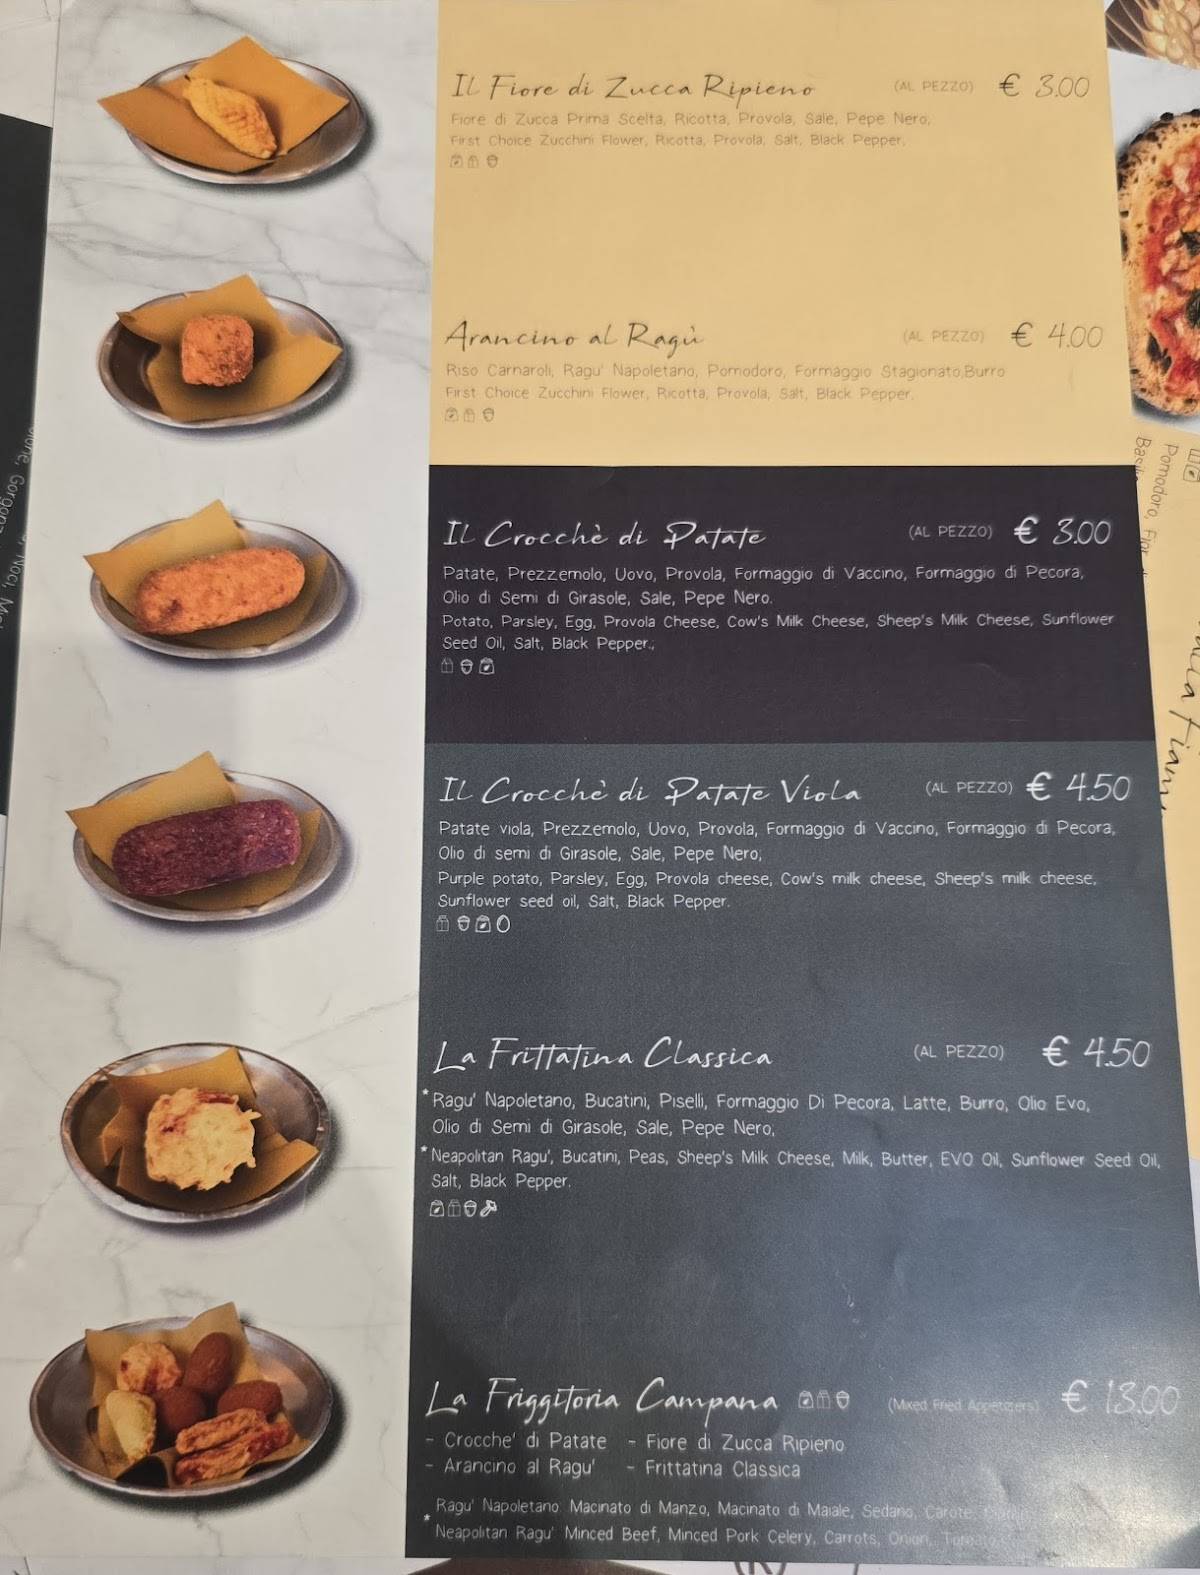 Il Fiore di Zucca Ripieno (AL PEZZO) € 3.00
Fiore di Zucca Prima Scelta, Ricotta, Provola, Sale, Pepe Nero,
First Choice Zucchini Flower, Ricotta, Provola, Salt, Black Pepper,
Arancino al Ragù (AL PEZZO) € 4.00
Riso Carnaroli, Ragu' Napoletano, Pomodoro, Formaggio Stagionato,Burro
First Choice Zucchini Flower, Ricotta, Provola, Salt, Black Pepper,
Il Crocchè di Patate (AL PEZZO) € 3.00
Patate, Prezzemolo, Uovo, Provola, Formaggio di Vaccino, Formaggio di Pecora,
Olio di Semi di Girasole, Sale, Pepe Nero.
Potato, Parsley, Egg, Provola Cheese, Cow's Milk Cheese, Sheep's Milk Cheese, Sunflower
Seed Oil, Salt, Black Pepper.;
Il Crocchè di Patate Viola (AL PEZZO) € 4.50
Patate viola, Prezzemolo, Uovo, Provola, Formaggio di Vaccino, Formaggio di Pecora,
Olio di semi di Girasole, Sale, Pepe Nero;
Purple potato, Parsley, Egg, Provola cheese, Cow's milk cheese, Sheep's milk cheese,
Sunflower seed oil, Salt, Black Pepper.
La Frittatina Classica (AL PEZZO) € 4.50
* Ragu' Napoletano, Bucatini, Piselli, Formaggio Di Pecora, Latte, Burro, Olio Evo,
Olio di Semi di Girasole, Sale, Pepe Nero,
* Neapolitan Ragu', Bucatini, Peas, Sheep's Milk Cheese, Milk, Butter, EVO Oil, Sunflower Seed Oil,
Salt, Black Pepper.
La Friggitoria Campana (Mixed Fried Appetizers) € 13.00
- Crocche' di Patate - Fiore di Zucca Ripieno
- Arancino al Ragu' - Frittatina Classica
* Ragu' Napoletano Macinato di Manzo, Macinato di Maiale, Sedano, Carote,
Neapolitan Ragu' Minced Beef, Minced Pork Celery, Carrots, Onion, Tomato
Pomodoro,
Noci,